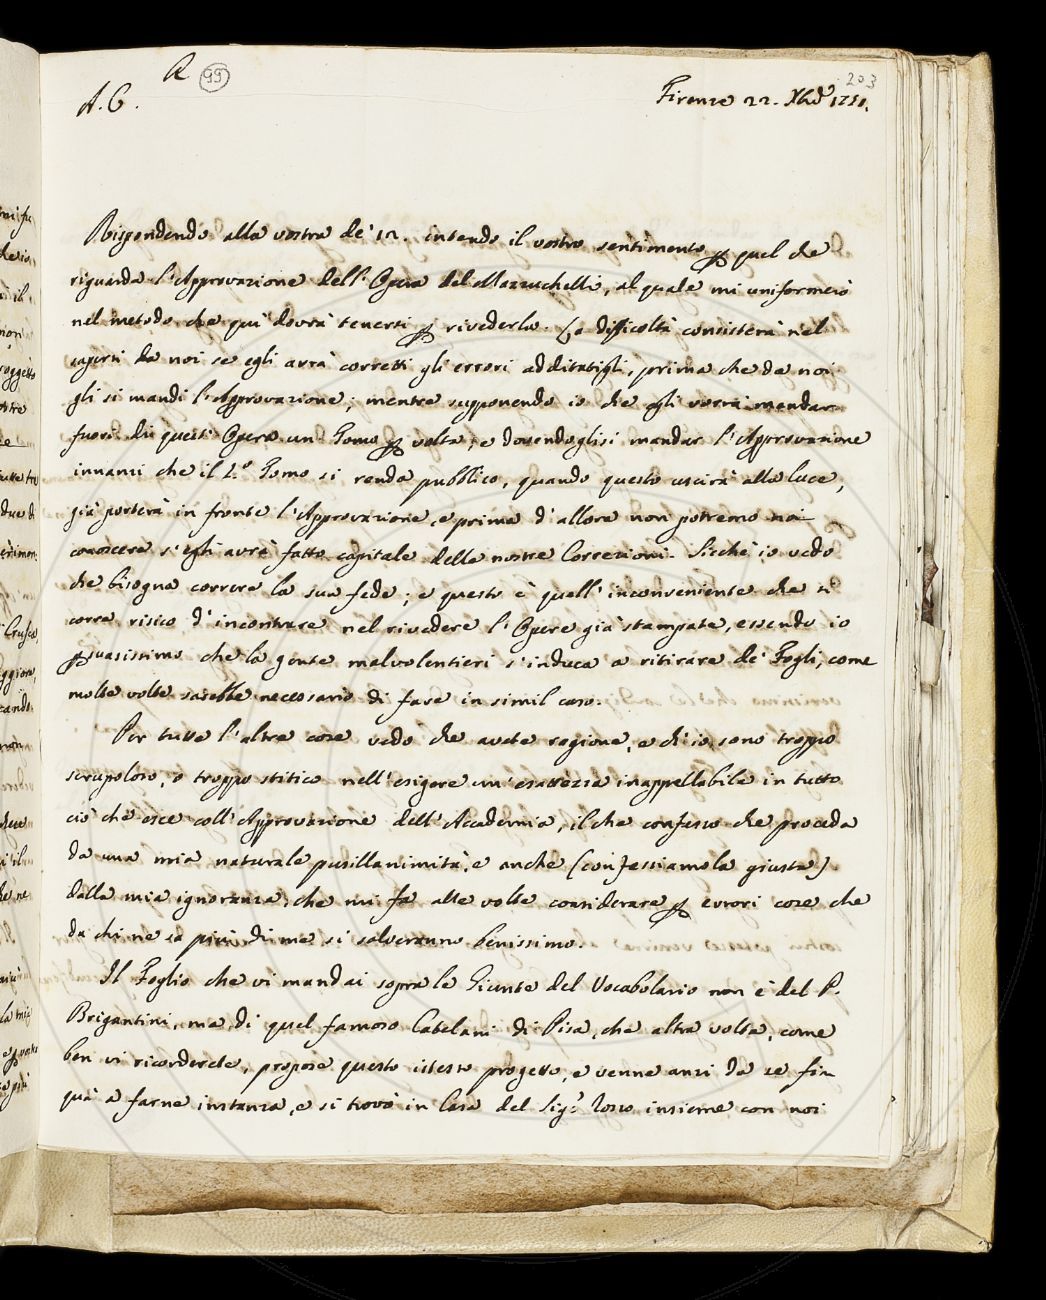 R 99
203
A. C.
Firenze 22. Xbre 1751.
Rispondendo alla vostra de' 12. intendo il vostro sentimento per quel che
riguarda l'Approvazione dell'Opera del Mazzuchelli, al quale mi uniformerò
nel metodo, che più dovrà tenersi per rivederla. La difficoltà consisterà nel
sapersi da noi se egli avrà corretti gli errori additatigli, prima che da noi
gli si mandi l'Approvazione; mentre supponendo io che egli vorrà mandar
fuori di quest'Opera un Tomo per volta, e dovendoglisi mandar l'Approvazione
innanzi che il 1.º Tomo si renda pubblico, quando questo uscirà alla luce,
già porterà in fronte l'Approvazione, e prima d'allora non potremo noi
conoscere s'egli avrà fatto capitale delle nostre Correzioni. Sicchè io vedo
che bisogna correre la sua fede; e questo è quell'inconveniente che si
corre risico d'incontrare nel rivedere l'Opere già stampate, essendo io
persuasissimo che la gente malvolentieri s'induca a ritirare de' Fogli, come
molte volte sarebbe necessario di fare in simil caso.
Per tutte l'altre cose vedo che avete ragione, e ch'io sono troppo
scrupoloso, o troppo stitico nell'esigere un'esattezza inappellabile in tutto
ciò che esce coll'Approvazione dell'Accademia, il che confesso che proceda
da una mia naturale pusillanimità, e anche (confessiamola giusta)
dalla mia ignoranza, che mi fa alle volte considerare per errori cose che
da chi ne sa più di me si salveranno benissimo.
Il Foglio che vi mandai sopra le Giunte del Vocabolario non è del P.
Brigantini, ma di quel famoso Catelani di Pisa, che altra volta, come
ben vi ricorderete, propose questo istesso progetto, e venne anzi da se fin
quà a farne instanza, e si trovò in Casa del Sig.r Rosso insieme con noi